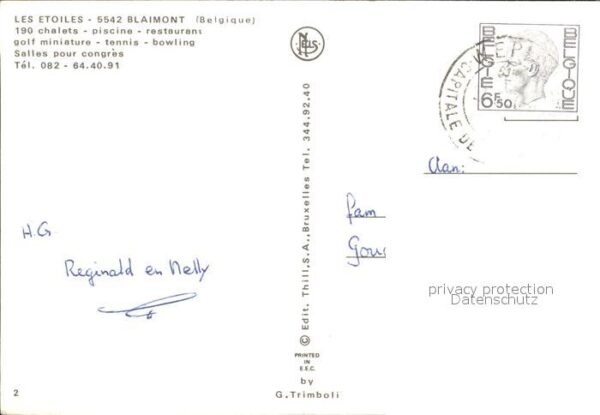 LES ETOILES - 5542 BLAIMONT (Belgique)
190 chalets - piscine - restaurant
golf miniature - tennis - bowling
Salles pour congrès
Tél. 082 - 64.40.91
NELS
BELGIE 6F50 BELGIQUE
CAPITALE DE
Aan:
fam
H.G.
Reginald en Nelly
© Edit. Thill,S.A.,Bruxelles Tel. 344.92.40
privacy protection
Datenschutz
PRINTED
IN
E.E.C.
by
G.Trimboli
2